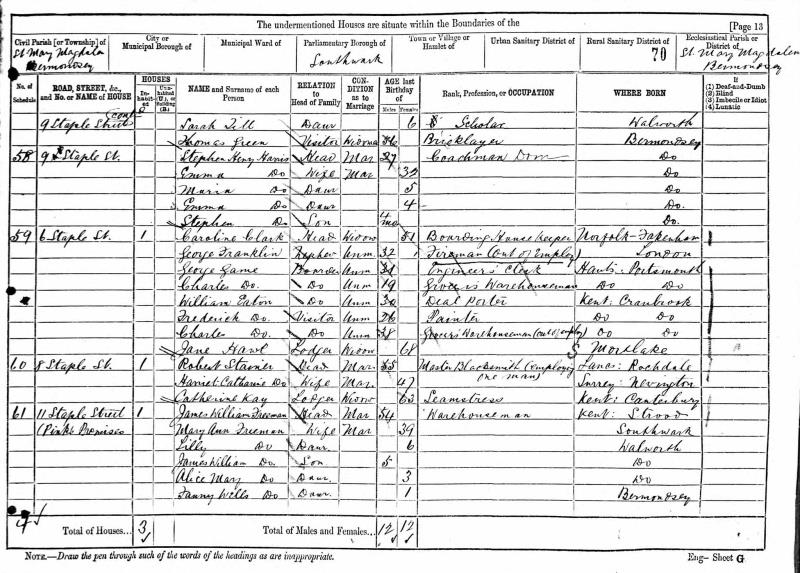 The undermentioned Houses are situate within the Boundaries of the
[Page 13
Civil Parish [or Township] of
St. Mary Magdalen
Bermondsey
City or
Municipal Borough of
Municipal Ward of
Parliamentary Borough of
Southwark
Town or Village or
Hamlet of
Urban Sanitary District of
Rural Sanitary District of
70
Ecclesiastical Parish or
District of
St. Mary Magdalen
Bermondsey
No. of
Schedule
ROAD, STREET, &c.,
and No. or NAME of HOUSE
HOUSES
In-
habit-
ed
Unin-
habited
(U.), or
Building
(B.)
NAME and Surname of each
Person
RELATION
to
Head of Family
CON-
DITION
as to
Marriage
AGE last
Birthday
of
Males
Females
Rank, Profession, or OCCUPATION
WHERE BORN
If
(1) Deaf-and-Dumb
(2) Blind
(3) Imbecile or Idiot
(4) Lunatic
9 Staple Street Sarah Till Daur 6 Scholar Walworth
Thomas Green Visitor Bricklayer Bermondsey
58 9 Staple St. Stephen Henry Harris Head Mar 27 Coachman Dom Do
Emma Do Wife Mar Do
Maria Do Daur 5 Do
Emma Do Daur 4 Do.
Stephen Do Son 4 mo Do.
59 6 Staple St. 1 Caroline Clark Head Widow 51 Boarding House Keeper Norfolk - Fakenham
George Franklin Nephew Unm 32 Fireman (Out of Employ) London
George Game Boarder Unm 31 Engineer's Clerk Hants: Portsmouth
Charles Do. Do Unm 19 Grocer's Warehouseman Do Do
William Eaton Do Unm 30 Deal Porter Kent: Cranbrook
Frederick Do. Visitor Unm 26 Painter Do Do
Charles Do. Do Unm 28 Grocer's Warehouseman (out of employ) Do Do
Jane Lodger Widow 68 Mortlake
60 8 Staple St. 1 Robert Head Mar 55 Master Blacksmith (employing
one man) Lancs: Rochdale
Harriet Catharine Do Wife Mar 47 Surrey: Newington
Catherine Kay Lodger Widow 63 Seamstress Kent: Canterbury
61 11 Staple Street 1 James William Freeman Head Mar 54 Warehouseman Kent: Strood
(Pinks Premises Mary Ann Freeman Wife Mar 39 Southwark
Lilly Do Daur. 6 Walworth
James William Do. Son 5 Do
Alice Mary Do Daur. 3 Do
Fanny Wells Do Daur. 1 Bermondsey
4
Total of Houses... 3
Total of Males and Females... 12 12
NOTE.—Draw the pen through such of the words of the headings as are inappropriate.
Eng- Sheet G